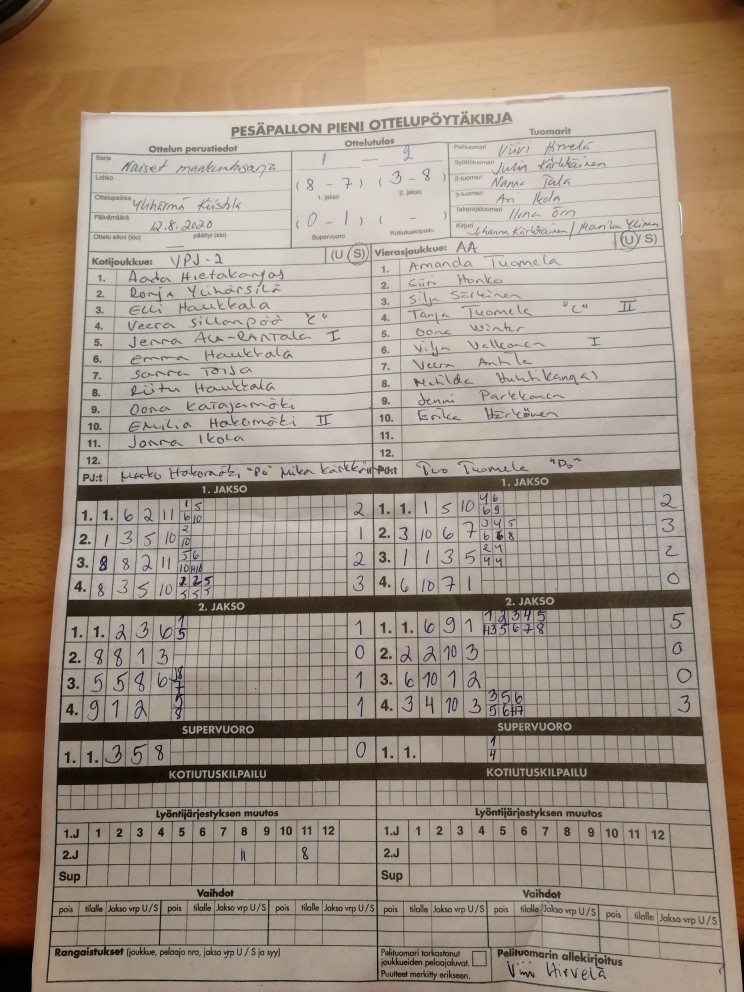 PESÄPALLON PIENI OTTELUPÖYTÄKIRJA
Ottelun perustiedot
Ottelutulos
Tuomarit
Sarja
Naiset maakuntasarja
1 — 2
Pelituomari Viivi Hirvelä
Lohko
(8 - 7) (3 - 8)
Syöttötuomari Julia Kärkkäinen
1. jakso 2. jakso
2-tuomari Nanna Tala
Ottelupaikka Ylihärmä Kiishla
3-tuomari Ari Ikola
Päivämäärä 12.8.2020
(0 - 1) ( - )
Takarajatuomari Ilona Örn
Ottelu alkoi (klo) päättyi (klo)
Supervuoro Kotiutuskilpailu
Kirjuri Johanna Kärkkäinen / Marika Ylinen
Kotijoukkue: YPJ-2 (U/S)
Vierasjoukkue: AA (U/S)
1. Aada Hietakangas
2. Ronja Ylihärsilä
3. Elli Haukkala
4. Veera Sillanpää "C"
5. Jenna Ala-Rantala I
6. Emma Haukkala
7. Sanna Toija
8. Riitu Haukkala
9. Oona Katajamäki
10. Emilia Hakomäki II
11. Jonna Ikola
12.
PJ:t Marko Hakomäki "Pö" Mika Kärkkäin
1. Amanda Tuomela
2. Siiri Honko
3. Silja Särkinen
4. Tanja Tuomela "C" II
5. Oona Winter
6. Vilja Velkonen I
7. Veera Anttila
8. Matilda Huhtikangas
9. Jenni Parkkonen
10. Erika Härkönen
11.
12.
PJ:t Tuo Tuomela "Pö"
1. JAKSO
1. 1. 6 2 11 1 5 2
6 10
2. 1 3 5 10 2 1
10
3. 8 8 2 11 5 6 2
4. 8 3 5 10 2 2 5 3
5 5 5
1. JAKSO
1. 1. 1 5 10 4 6 2
6 9
2. 3 10 6 7 3 4 5 3
6 6 8
3. 1 1 3 5 2 4 2
4 4
4. 6 10 7 1 0
2. JAKSO
1. 1. 2 3 6 1 1
5
2. 8 8 1 3 0
3. 5 5 8 6 1
4. 9 1 2 5 1
8
2. JAKSO
1. 1. 6 9 1 1 2 3 4 5 5
5 6 7 8
2. 2 2 10 3 0
3. 6 10 1 2 0
4. 3 4 10 3 3 5 6 3
SUPERVUORO
1. 1. 3 5 8 0
SUPERVUORO
1. 1. 1
4
KOTIUTUSKILPAILU
KOTIUTUSKILPAILU
Lyöntijärjestyksen muutos
1.J 1 2 3 4 5 6 7 8 9 10 11 12
2.J 11 8
Sup
Lyöntijärjestyksen muutos
1.J 1 2 3 4 5 6 7 8 9 10 11 12
2.J
Sup
Vaihdot
pois tilalle Jakso vrp U/S pois tilalle Jakso vrp U/S pois tilalle Jakso vrp U/S
Vaihdot
pois tilalle Jakso vrp U/S pois tilalle Jakso vrp U/S pois tilalle Jakso vrp U/S
Rangaistukset (joukkue, pelaaja nro, jakso vrp U / S ja syy)
Pelituomari tarkastanut
joukkueiden pelaajaluvat.
Puutteet merkitty erikseen.
Pelituomarin allekirjoitus
Viivi Hirvelä